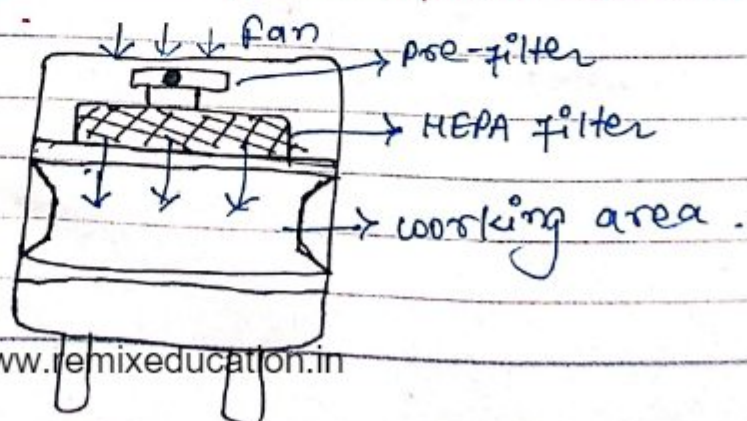 Fan
Pre-filter
HEPA filter
working area.
www.remixeducation.in